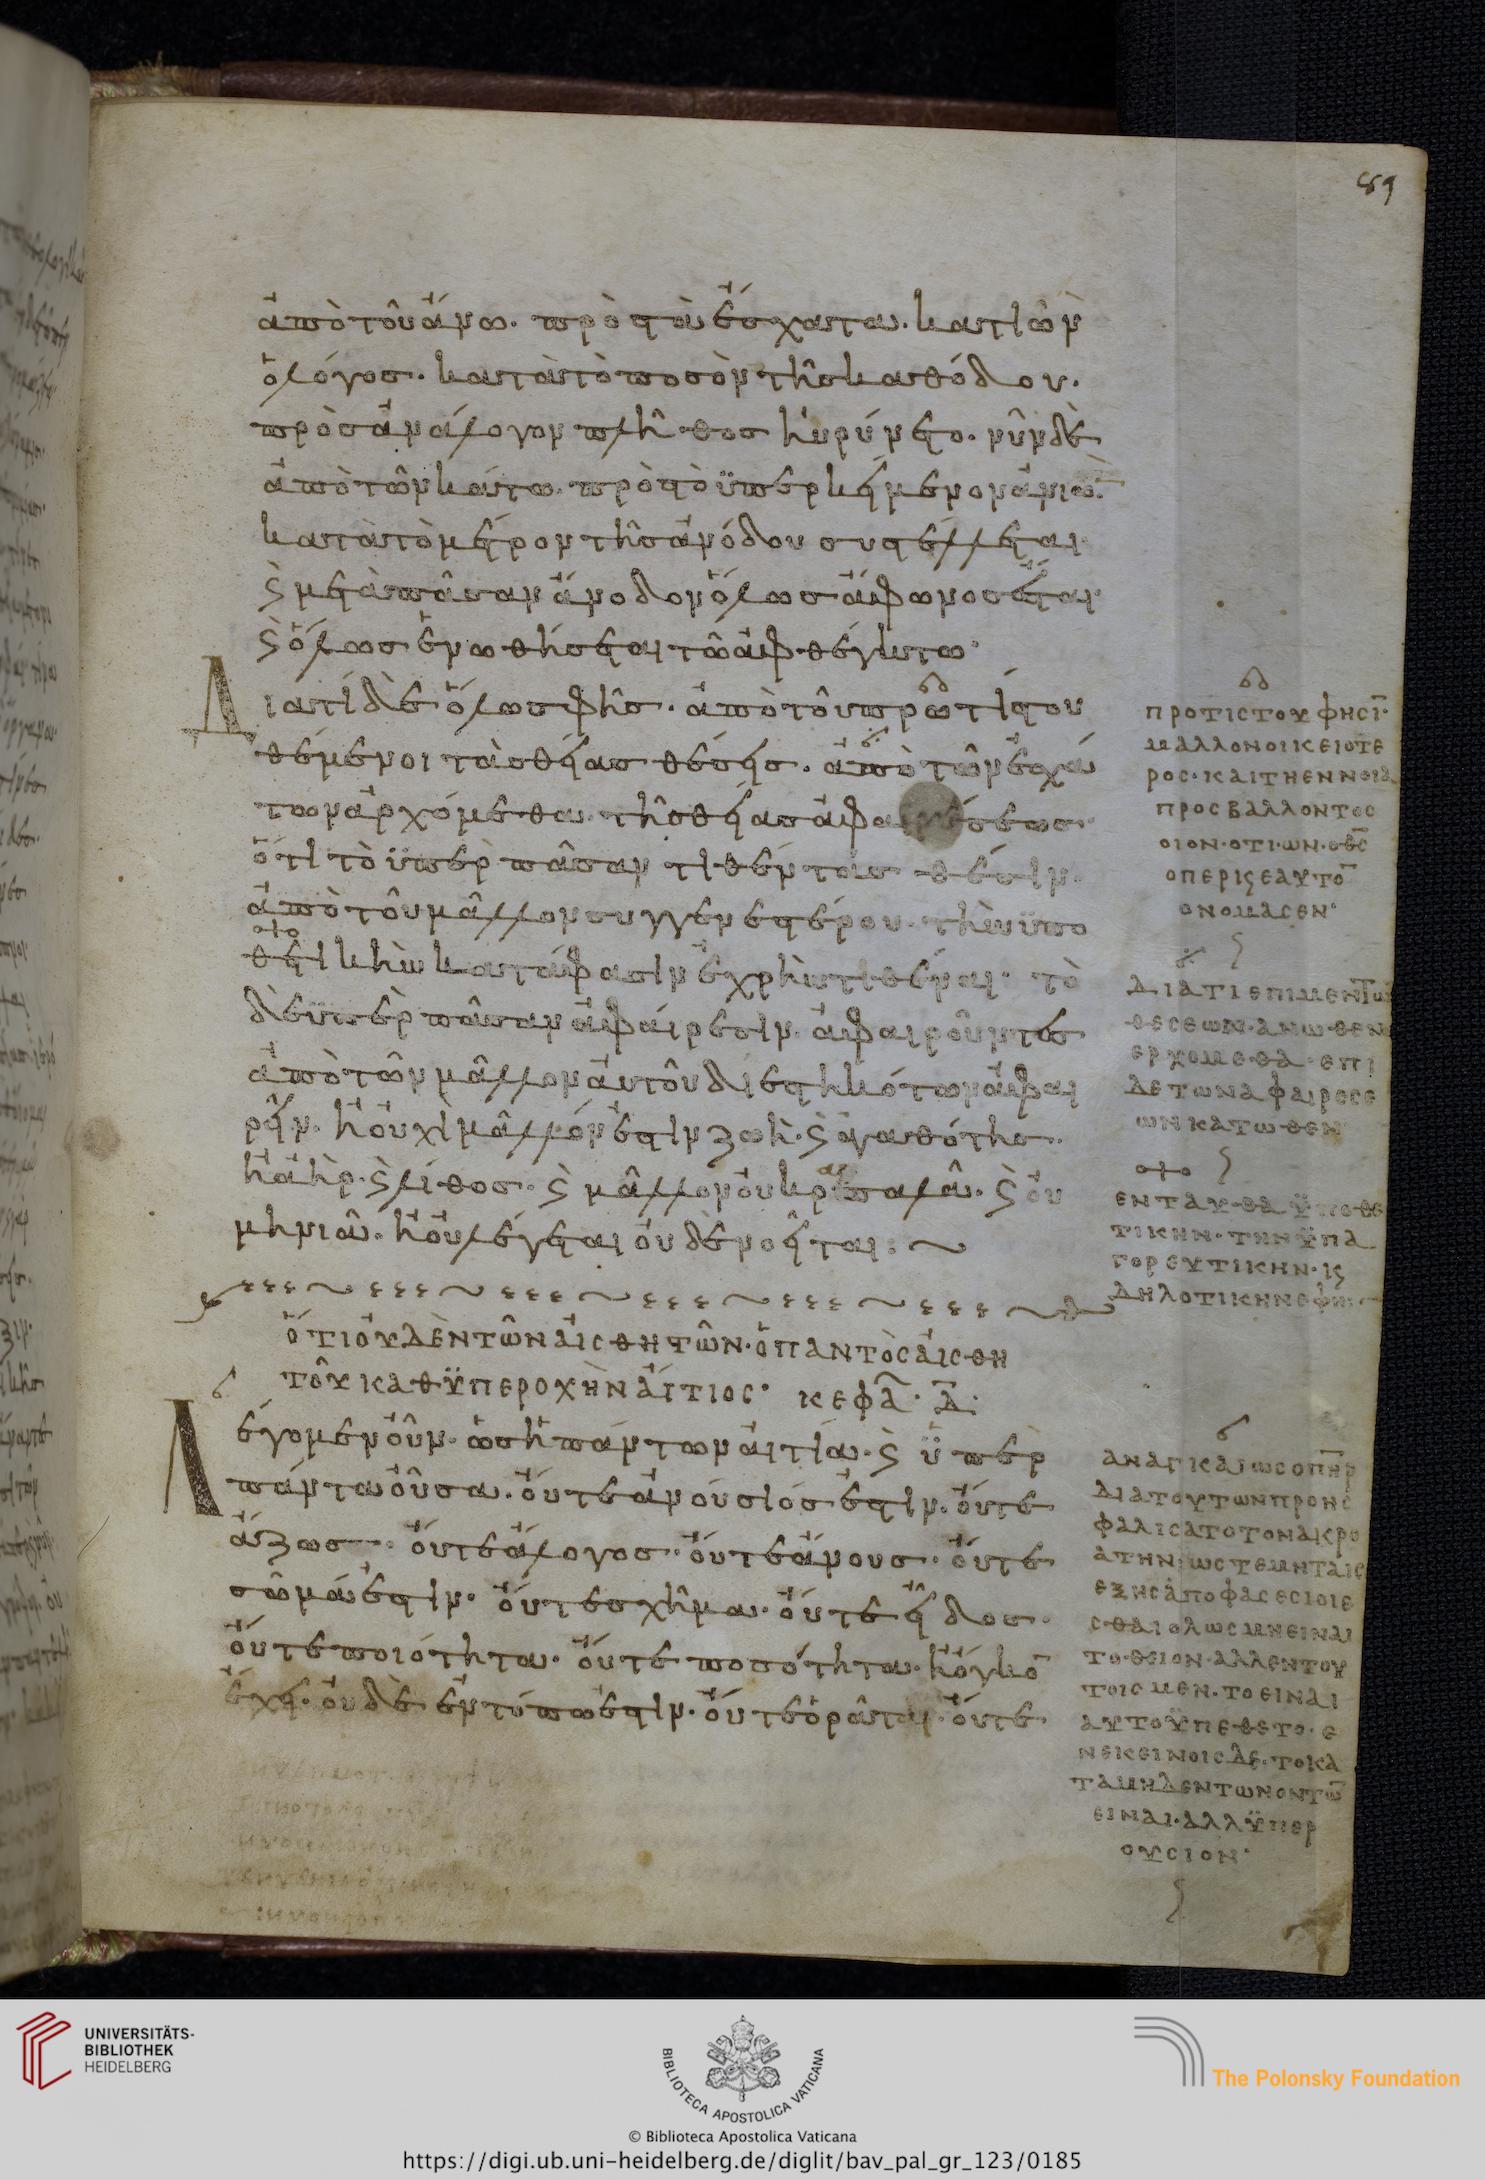 89
ἀπὸ τοῦ ἄνω. πρὸς τὰ ἔσχατα. κατιὼν
ὁ λόγος. κατὰ τὸ ποσὸν τῆς καθόδου.
πρὸς ἀνάλογον πλῆθος ηὐρύνετο. νῦν δὲ
ἀπὸ τῶν κάτω. πρὸς τὸ ὑπερκείμενον ἀνιὼν.
κατὰ τὸ μέτρον τῆς ἀνόδου συστέλλεται.
ϗ μετὰ πᾶσαν ἄνοδον ὅλως ἄφωνος ἔσται.
ϗ ὅλως ἑνωθήσεται τῶ ἀφθέγκτω.
Διατί δὲ ὅλως φῂς. ἀπὸ τοῦ πρωτίστου
θέμενοι τὰς θείας θέσεις. ἀπὸ τῶν ἐσχά
των ἀρχόμεθα τῆς θείας ἀφαιρέσεως.
ὅτι τὸ ὑπὲρ πᾶσαν τιθέντας θέσιν.
ἀπὸ τοῦ μᾶλλον συγγενεστέρου. τὴν ὑπο
θετικὴν κατάφασιν ἐχρῆν τιθέναι. τὸ
δὲ ὑπὲρ πᾶσαν ἀφαίρεσιν. ἀφαιροῦντας
ἀπὸ τῶν μᾶλλον αὐτοῦ διεστηκότων ἀφαι
ρεῖν. ἢ οὐχὶ μᾶλλόν ἐστιν ζωὴ. ϗ ἀγαθότης.
ἢ ἀὴρ. ϗ λίθος. ϗ μᾶλλον οὐ κραιπαλᾶ. ϗ οὐ
μηνιᾶ. ἢ οὐ λέγεται οὐδὲ νοεῖται:
ὅτι οὐδὲν τῶν αἰσθητῶν. ὁ παντὸς αἰσθη
τοῦ καθ ὑπεροχὴν αἴτιος. κεφα. Δ.
Λέγομεν οὖν. ὡς ἡ πάντων αἰτία. ϗ ὑπὲρ
πάντα οὖσα. οὔτε ἀνούσιός ἐστιν. οὔτε
ἄζωος. οὔτε ἄλογος. οὔτε ἄνους. οὔτε
σῶμά ἐστιν. οὔτε σχῆμα. οὔτε εἶδος.
οὔτε ποιότητα. οὔτε ποσότητα. ἢ ὄγκον
ἔχει. οὐδὲ ἐν τόπω ἐστὶν. οὔτε ὁρᾶται. οὔτε
ΠΡΟΤΙCΤΟΥ ΦΗCΙ.
ΜΑΛΛΟΝ ΟΙΚΕΙΟΤΕ
ΡΟC. ΚΑΙ ΤΗ ΕΝΝΟΙΑ
ΠΡΟCΒΑΛΛΟΝΤΟC
ΟΙΟΝ. ΟΤΙ. ΩΝ. Ο ΘC
ΟΠΕΡ ΙC ΕΑΥΤΟ
ΟΝΟΜΑCΕΝ.
ΔΙΑΤΙ ΕΠΙ ΜΕΝ ΤΩ
ΘΕCΕΩΝ. ΑΝΩΘΕΝ
ΕΡΧΟΜΕΘΑ. ΕΠΙ
ΔΕ ΤΩΝ ΑΦΑΙΡΕCΕ
ΩΝ ΚΑΤΩΘΕΝ
ΕΝΤΑΥΘΑ ΫΠΟΘΕ
ΤΙΚΗΝ. ΤΗΝ ΫΠΑ
ΓΟΡΕΥΤΙΚΗΝ. Ϗ
ΔΗΛΟΤΙΚΗΝ ΕΦΗ
ΑΝΑΓΚΑΙΩC Ο ΠΗΡ
ΔΙΑ ΤΟΥΤΩΝ ΠΡΟΗC
ΦΑΛΙCΑΤΟ ΤΟΝ ΑΚΡΟ
ΑΤΗΝ. ΩCΤΕ ΜΗ ΤΑΙC
ΕΞΗC ΑΠΟΦΑCΕCΙ ΟΙΕ
CΘΑΙ ΟΛΩC ΜΗ ΕΙΝΑΙ
ΤΟ ΘΕΙΟΝ. ΑΛΛ ΕΝ ΤΟΥ
ΤΟΙC ΜΕΝ. ΤΟ ΕΙΝΑΙ
ΑΥΤΟ ΫΠΕΘΕΤΟ. Ε
Ν ΕΚΕΙΝΟΙC ΔΕ. ΤΟ ΚΑ
ΤΑ ΜΗΔΕΝ ΤΩΝ ΟΝΤΩ
ΕΙΝΑΙ. ΑΛΛ ΫΠΕΡ
ΟΥCΙΟΝ.
UNIVERSITÄTS-
BIBLIOTHEK
HEIDELBERG
BIBLIOTECA APOSTOLICA VATICANA
The Polonsky Foundation
© Biblioteca Apostolica Vaticana
https://digi.ub.uni-heidelberg.de/diglit/bav_pal_gr_123/0185